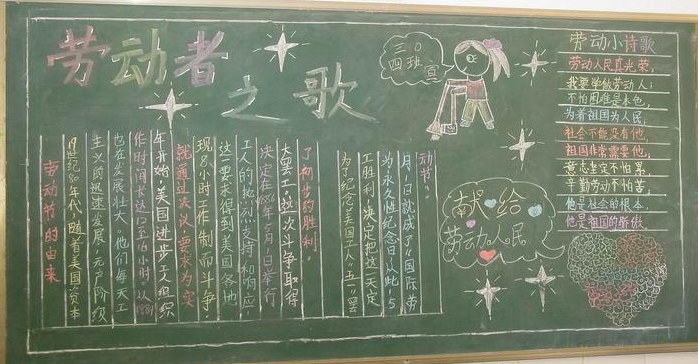 劳动者之歌
三0
四班宣
劳动节的由来
19世纪80年代,随着美国资本
主义的迅速发展,无产阶级
也在发展壮大。他们每天工
作时间长达12至16小时。从1881
年开始,美国进步工人组织
就通过决议,要求为实
现8小时工作制而斗争,
这一要求得到美国各地
工人的热烈支持和响应,
决定在1886年5月1日举行
大罢工。这次斗争取得
了初步的胜利。
为了纪念美国工人“五一”罢
工胜利,决定把这一天定
为永久性纪念日从此,5
月1日就成了“国际劳
动节”。
献给
劳动人民
劳动小诗歌
劳动人民真光荣,
我要学做劳动人;
不怕困难是本色,
为着祖国为人民,
社会不能没有他,
祖国非常需要他,
意志坚定不怕累,
辛勤劳动不怕苦,
他是社会的根本,
他是祖国的骄傲。